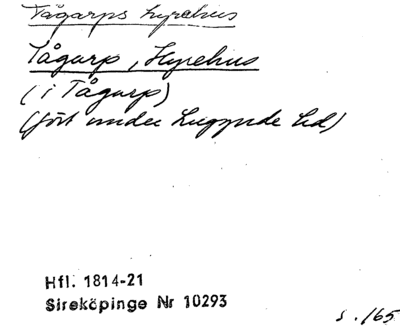 Tågarps hyrehus
Tågarp, Hyrehus
(i Tågarp)
(fört under
Hfl. 1814-21
Sireköpinge Nr 10293
s. 165